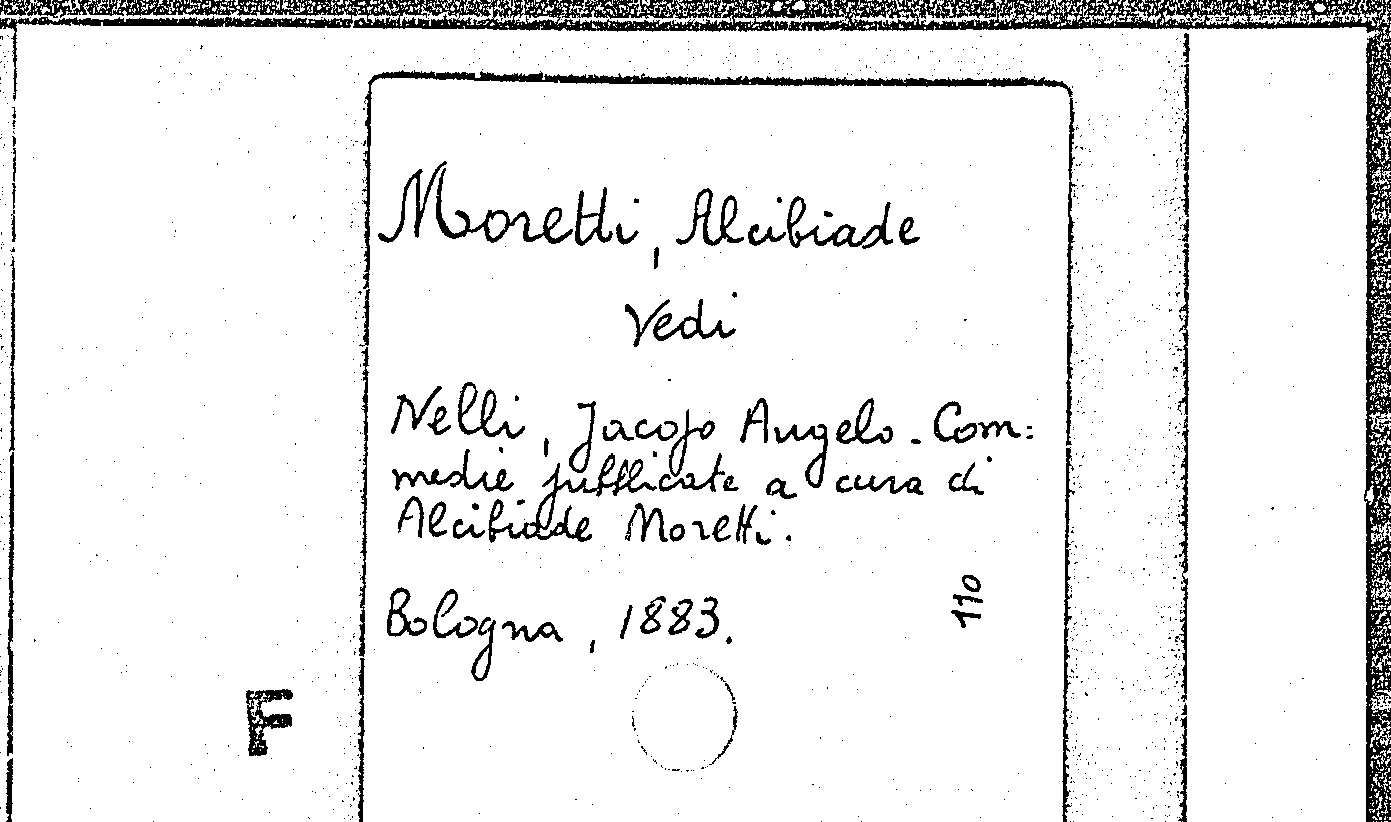 Moretti, Alcibiade
Vedi
Nelli, Jacopo Angelo. Com:
medie pubblicate a cura di
Alcibiade Moretti.
Bologna, 1883.
110
F